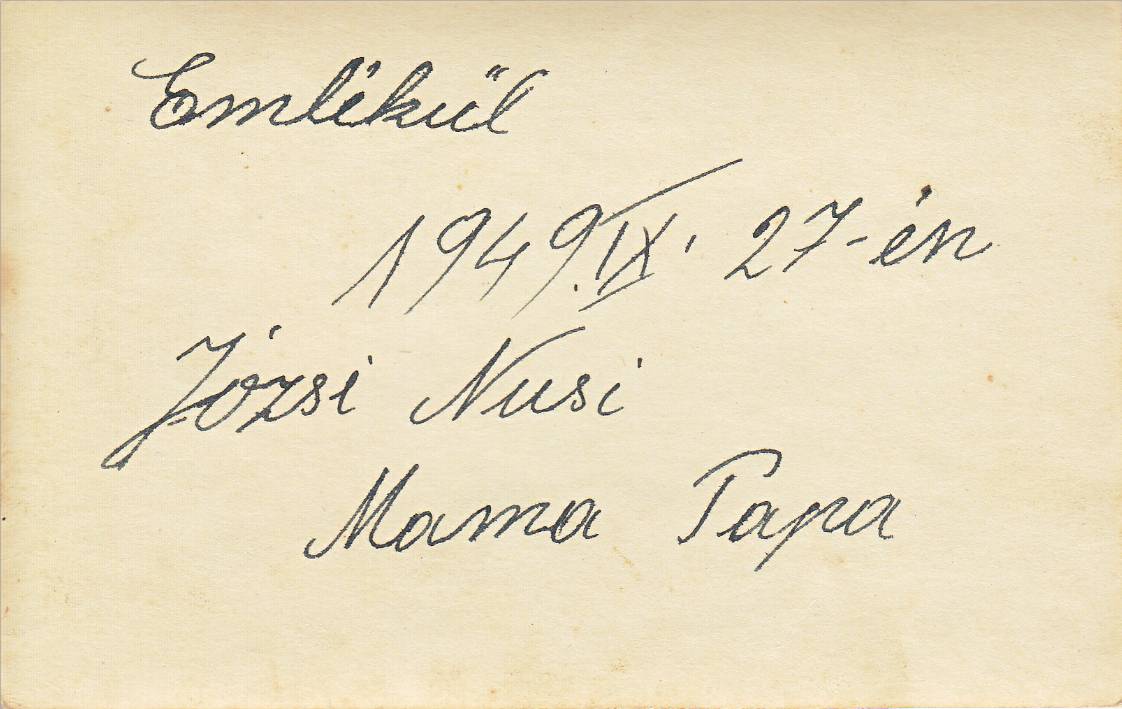 Emlékül
1949.IX. 27-én
Józsi Nusi
Mama Papa